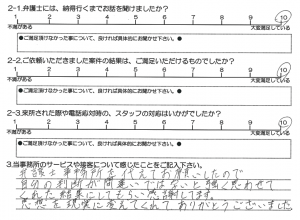 2-1.弁護士には、納得行くまでお話を聞けましたか？
1 2 3 4 5 6 7 8 9 10
不満がある 大変満足している
●ご満足頂けなかった事について、良ければ具体的にお聞かせ下さい。●
2-2.ご依頼いただきました案件の結果は、ご満足いただけるものでしたか？
1 2 3 4 5 6 7 8 9 10
不満がある 大変満足している
●ご満足頂けなかった事について、良ければ具体的にお聞かせ下さい。●
2-3.来所された際や電話応対時の、スタッフの対応はいかがでしたか？
1 2 3 4 5 6 7 8 9 10
不満がある 大変満足している
●ご満足頂けなかった事について、良ければ具体的にお聞かせ下さい。●
3.当事務所のサービスや接客について感じたことをご記入下さい。
弁護士事務所を代えてお願いしたので
自分の判断が間違いではないと強く思わせて
くれた結果にしてもらい感謝してます。
を現実に変えてくれてありがとうございました